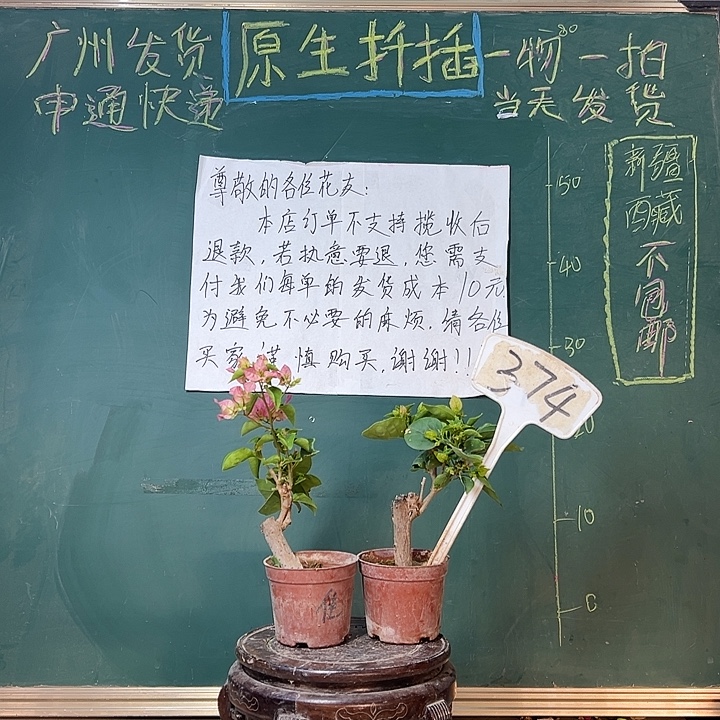 广州发货
原生扦插
一物一拍
申通快递
当天发货
80
新疆
西藏
不包邮
尊敬的各位花友:
本店订单不支持揽收后
退款,若执意要退,您需支
付我们每单的发货成本10元
为避免不必要的麻烦.请各位
买家谨慎购买,谢谢!!
50
40
30
20
10
0
374